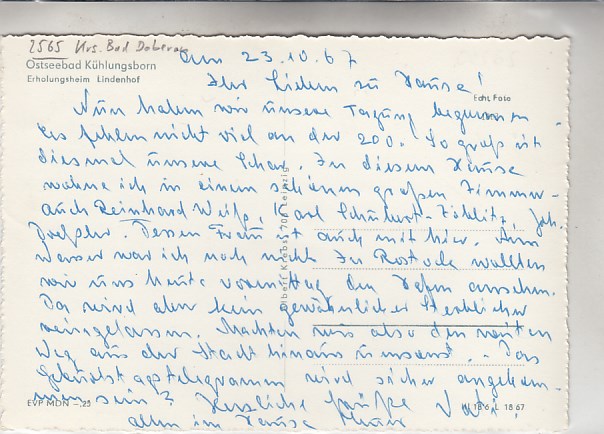 2565 Krs. Bad Doberan
Ostseebad Kühlungsborn
Erholungsheim Lindenhof
den 23.10.67
Ihr Lieben zu Hause!
Echt Foto
Nun haben wir unsere Tagung begonnen
Es fehlen nicht viel an der 200. So groß ist
diesmal unsere Schar. In diesem Hause
wohne ich in einem schönen großen Zimmer -
auch Reinhard Weiß, Karl Schubert-Zöblitz, Joh.
Dessen Frau ist auch mit hier. Am
Wasser war ich noch nicht. In Rostock wollten
wir uns heute vormittag den Hafen ansehen.
Da wird aber kein gewöhnlicher Sterblicher
reingelassen. Machten uns also den weiten
Weg aus der Stadt hinaus umsonst. - Das
Geburtstagstelegramm wird sicher angekom-
men sein? Herzliche Grüße
allen im Hause
Albert Krebs, 705 Leipzig
EVP MDN -.25
III 18 6 L 18 67